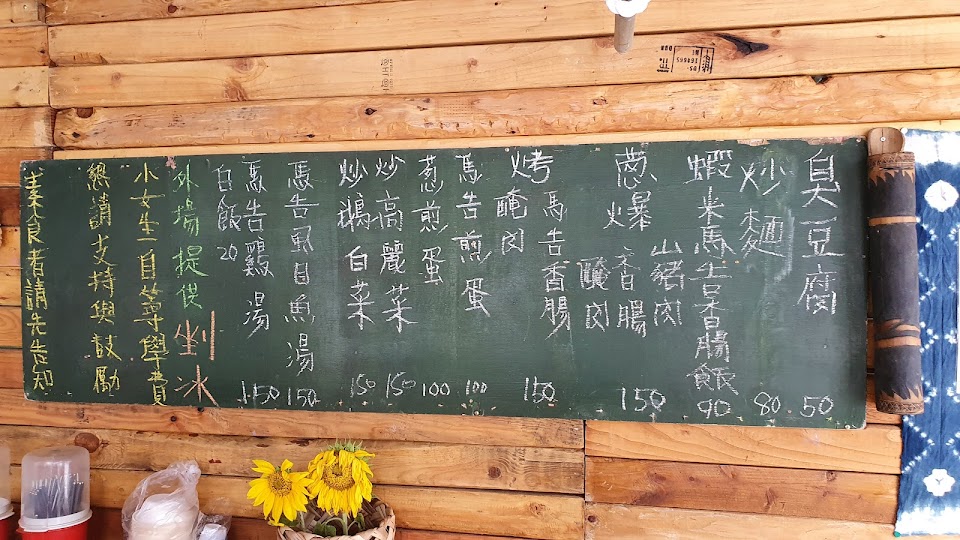 臭豆腐 50
炒麵 80
蝦米馬告香腸飯 90
蔥爆 山豬肉
香腸
醃肉 150
烤 馬告香腸
醃肉 150
馬告煎蛋 100
蔥煎蛋 100
炒高麗菜 150
炒鵝白菜 150
馬告虱目魚湯 150
馬告雞湯 150
白飯 20
外場提供剉冰
小女生自籌學費
懇請支持與鼓勵
素食者請先告知